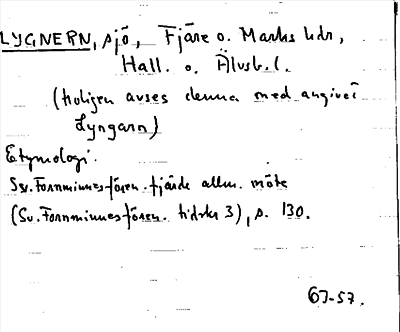 LYGNERN, sjö, Fjäre o. Marks hdr,
Hall. o. Älvsb. l.
(troligen avses denna med angivet
Lyngarn)
Etymologi.
Sv. Fornminnesfören. fjärde allm. möte
(Sv. Fornminnesfören. tidskr 3), s. 130.
63-57.